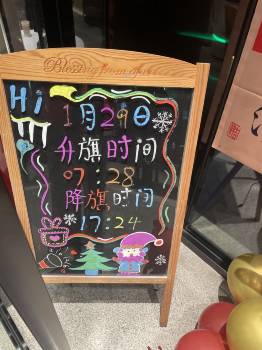 Hi
1月29日
升旗时间
07:28
降旗时间
17:24